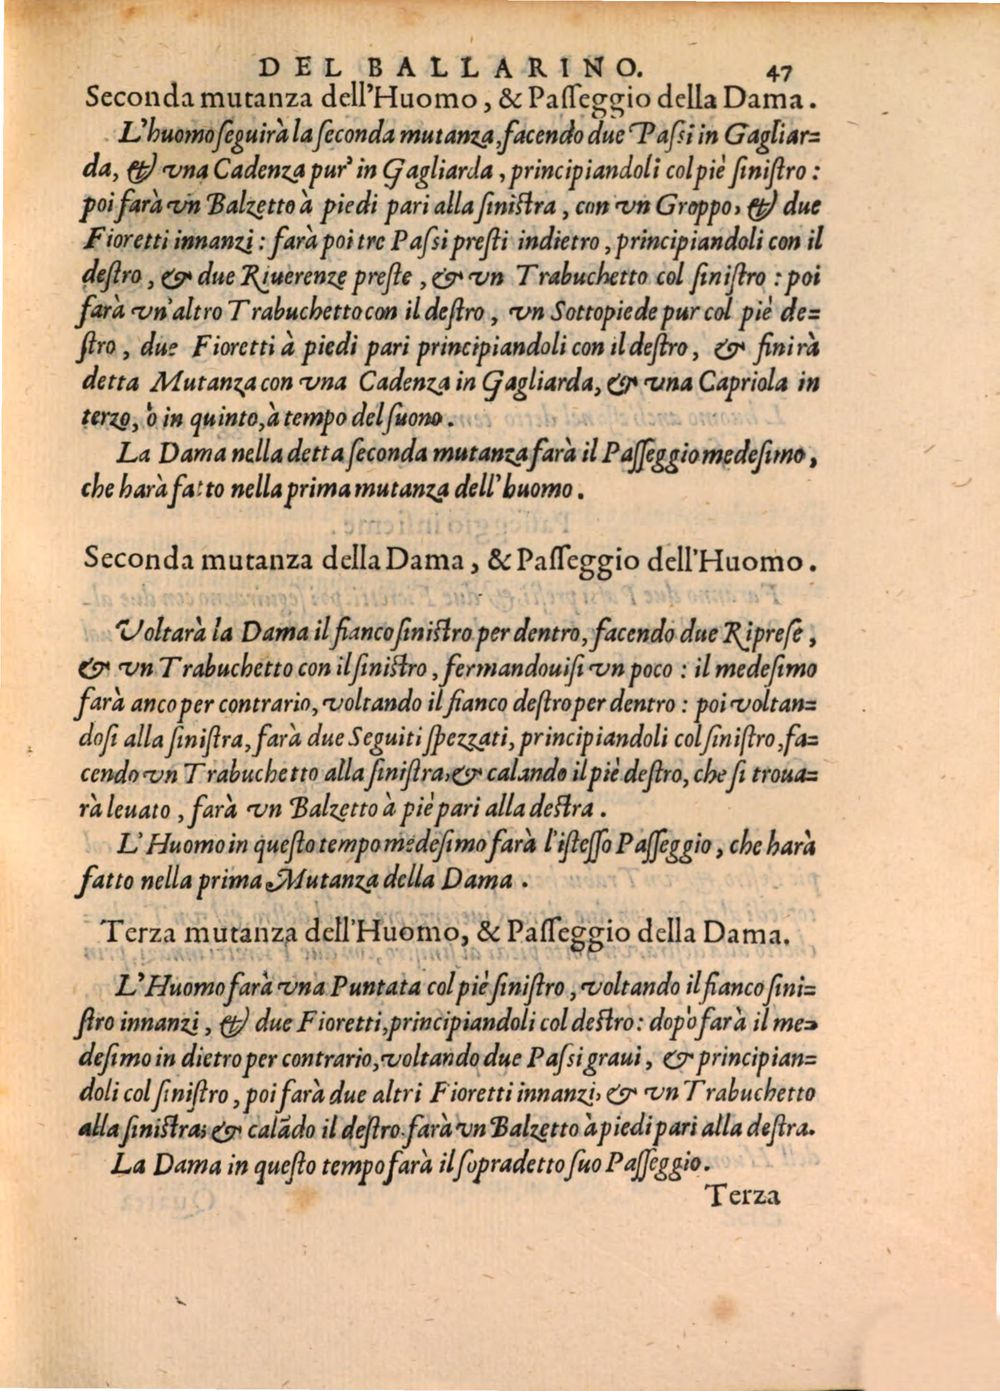 DEL BALLARINO. 47
Seconda mutanza dell'Huomo, & Paſſeggio della Dama.
L'huomo ſeguirà la ſeconda mutanza, facendo due Paſsi in Gagliar=
da, & vna Cadenza pur' in Gagliarda, principiandoli col piè ſiniſtro:
poi farà vn Balzetto à piedi pari alla ſiniſtra, con vn Groppo, & due
Fioretti innanzi: farà poi tre Paſsi preſti indietro, principiandoli con il
deſtro, & due Riuerenze preſte, & vn Trabuchetto col ſiniſtro: poi
farà vn'altro Trabuchetto con il deſtro, vn Sottopiede pur col piè de=
ſtro, due Fioretti à piedi pari principiandoli con il deſtro, & finirà
detta Mutanza con vna Cadenza in Gagliarda, & vna Capriola in
terzo, ò in quinto, à tempo del ſuono.
La Dama nella detta ſeconda mutanza farà il Paſſeggio medeſimo,
che harà fatto nella prima mutanza dell'huomo.
Seconda mutanza della Dama, & Paſſeggio dell'Huomo.
Voltarà la Dama il fianco ſiniſtro per dentro, facendo due Ripreſe,
& vn Trabuchetto con il ſiniſtro, fermandouiſi vn poco: il medeſimo
farà anco per contrario, voltando il fianco deſtro per dentro: poi voltan=
doſi alla ſiniſtra, farà due Seguiti ſpezzati, principiandoli col ſiniſtro, fa=
cendo vn Trabuchetto alla ſiniſtra, & calando il piè deſtro, che ſi troua=
rà leuato, farà vn Balzetto à piè pari alla deſtra.
L'Huomo in queſto tempo medeſimo farà l'iſteſſo Paſſeggio, che harà
fatto nella prima Mutanza della Dama.
Terza mutanza dell'Huomo, & Paſſeggio della Dama.
L'Huomo farà vna Puntata col piè ſiniſtro, voltando il fianco ſini=
ſtro innanzi, & due Fioretti, principiandoli col deſtro: dopò farà il me=
deſimo in dietro per contrario, voltando due Paſsi graui, & principian=
doli col ſiniſtro, poi farà due altri Fioretti innanzi, & vn Trabuchetto
alla ſiniſtra; & calãdo il deſtro farà vn Balzetto à piedi pari alla deſtra.
La Dama in queſto tempo farà il ſopradetto ſuo Paſſeggio.
Terza